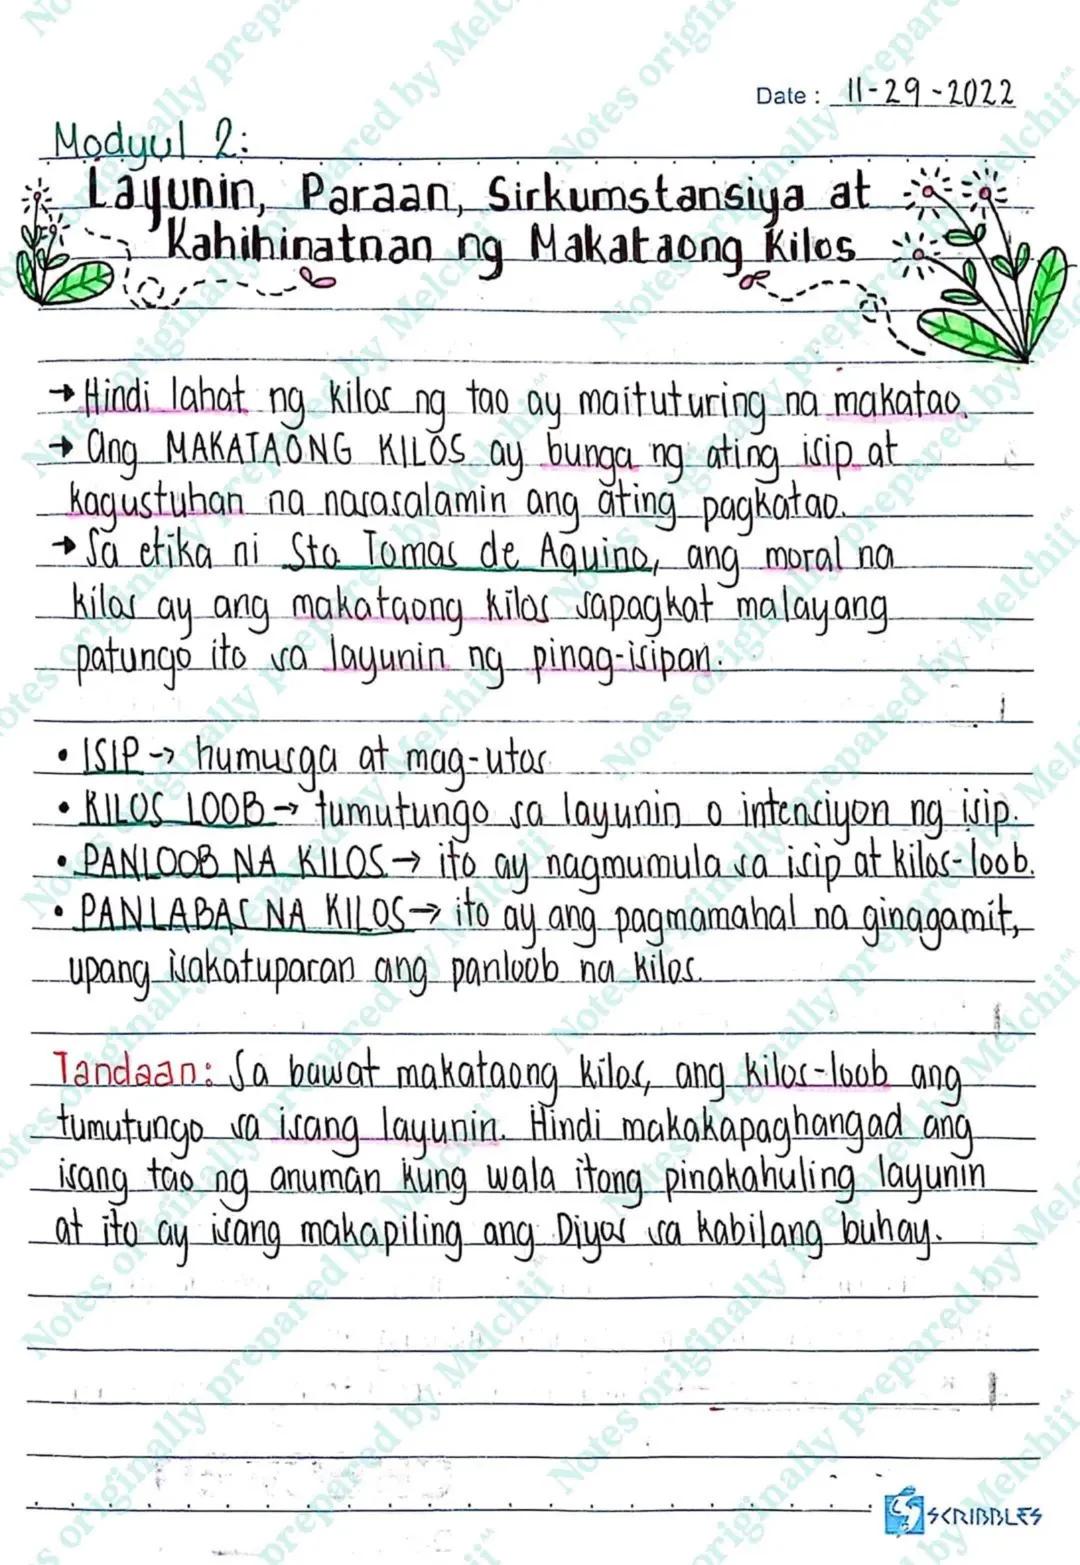 Date: 11-29-2022
Modyul 2:
Layunin, Paraan, Sirkumstansiya at
Kahihinatnan ng Makataong Kilos
→ Hindi lahat ng kilos ng tao ay maituturing na makatao.
→ Ang MAKATAONG KILOS ay bunga ng ating isip at
kagustuhan na nasasalamin ang ating pagkatao.
→ Sa etika ni Sto Tomas de Aquino, ang moral na
kilos ay ang makataong kilos sapagkat malayang
patungo ito sa layunin ng pinag-isipan.
• ISIP → humusga at mag-utos
• KILOS LOOB → tumutungo sa layunin o intensiyon ng isip.
• PANLOOB NA KILOS → ito ay nagmumula sa isip at kilos-loob.
• PANLABAS NA KILOS → ito ay ang pagmamahal na ginagamit,
upang isakatuparan ang panloob na kilos.
Tandaan: Sa bawat makataong kilos, ang kilos-loob ang
tumutungo sa isang layunin. Hindi makakapaghangad ang
isang tao ng anuman kung wala itong pinakahuling layunin
at ito ay isang makapiling ang Diyos sa kabilang buhay.
SCRIBBLES
Notes originally prepared by Melchii^^